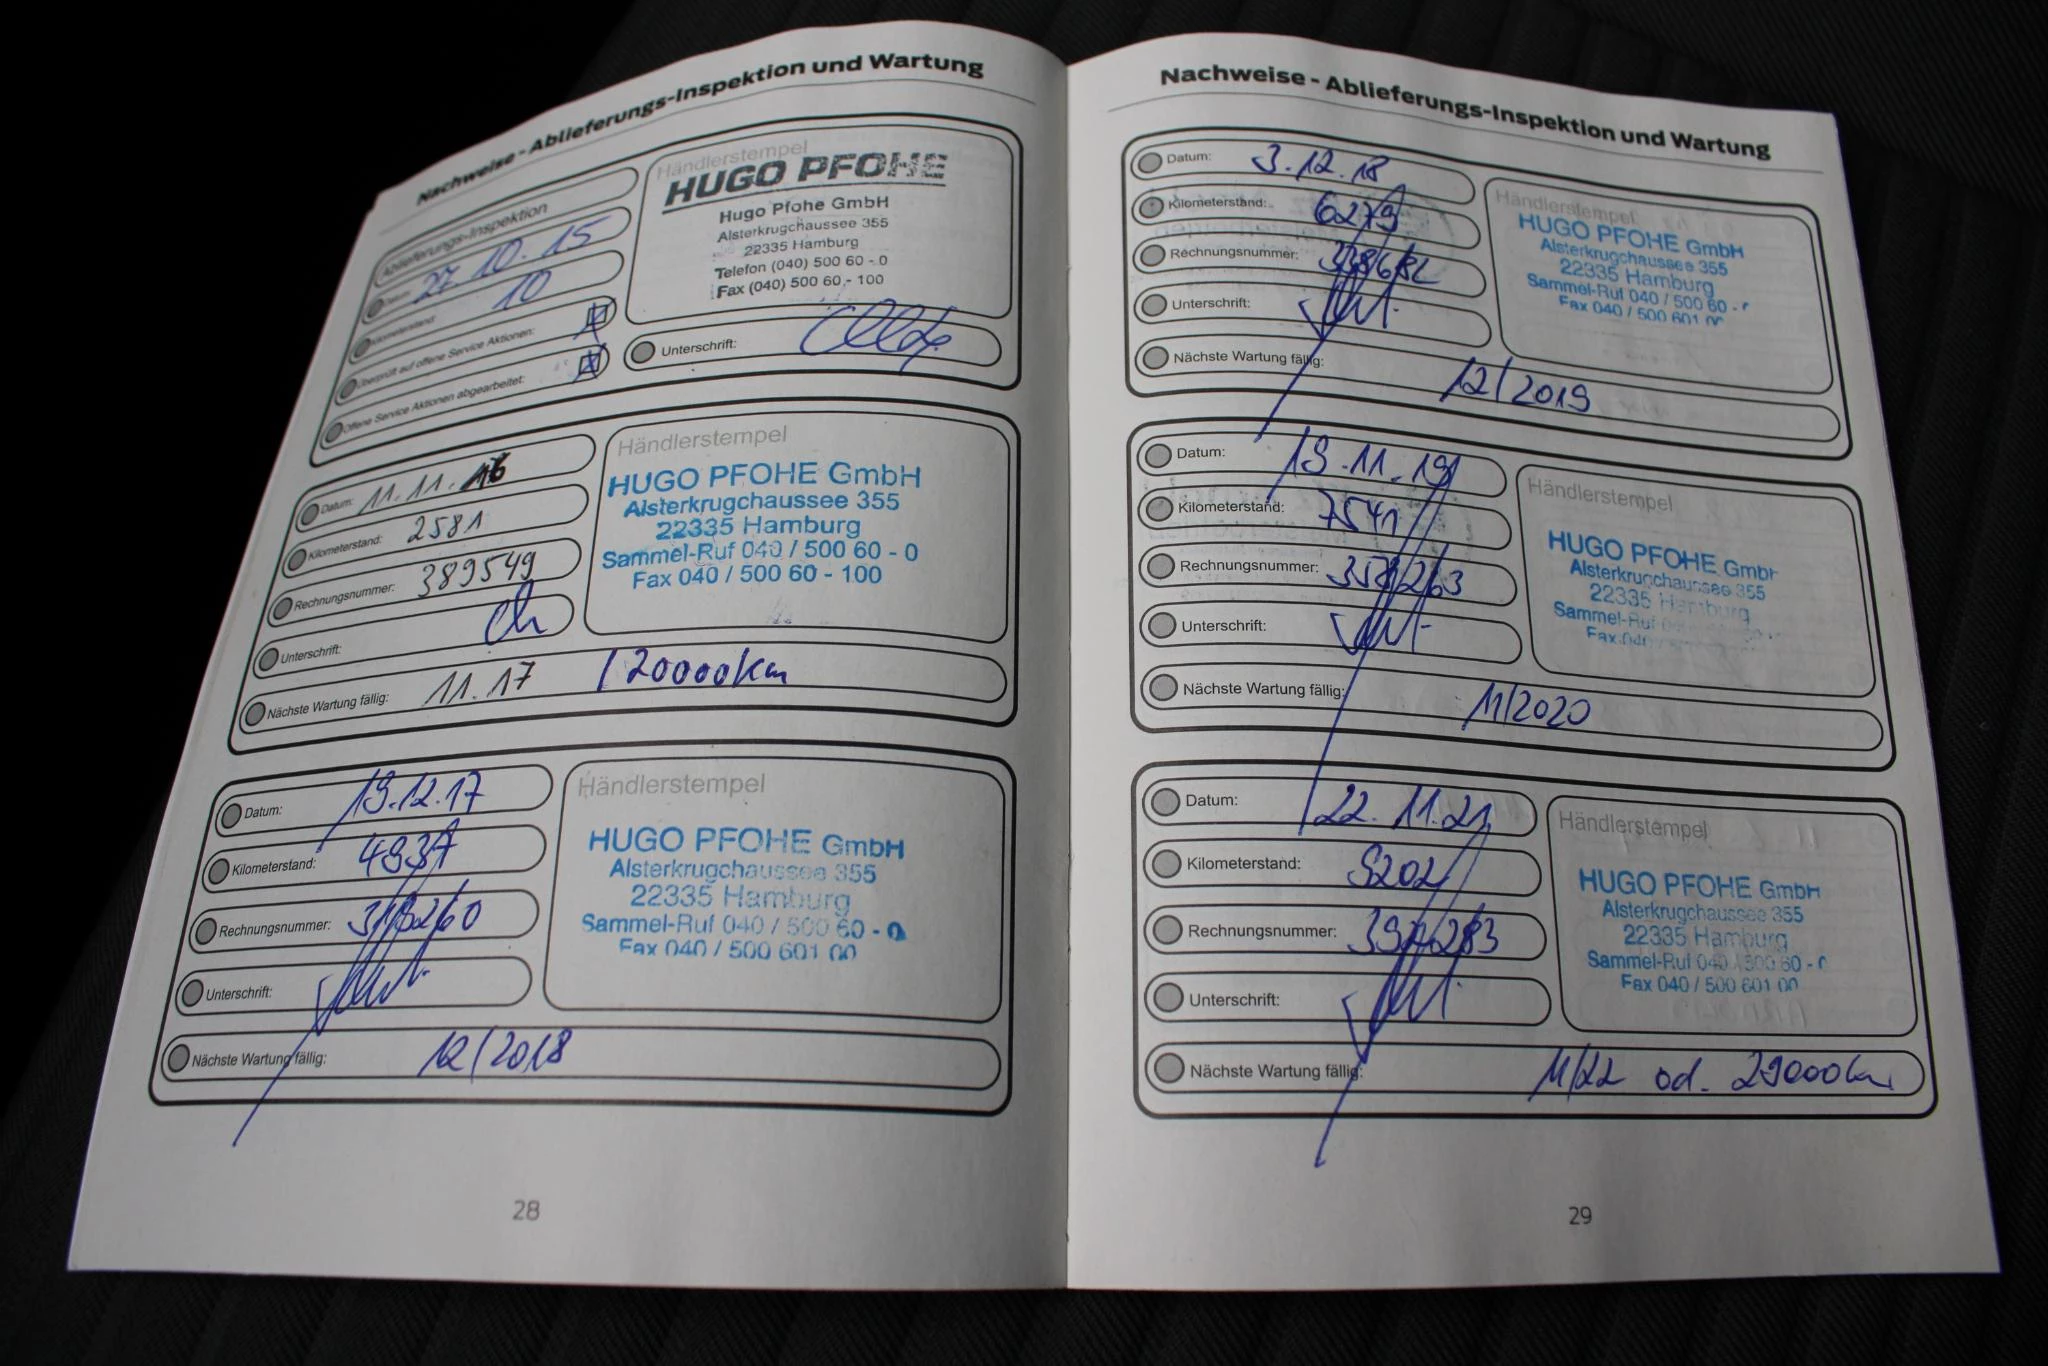 Nachweise - Ablieferungs-Inspektion und Wartung
Ablieferungs-Inspektion
Datum: 27.10.15
Kilometerstand: 10
Überprüft auf offene Service Aktionen:
Offene Service Aktionen abgearbeitet:
Händlerstempel
HUGO PFOHE
Hugo Pfohe GmbH
Alsterkrugchaussee 355
22335 Hamburg
Telefon (040) 500 60 - 0
Fax (040) 500 60 - 100
Unterschrift:
Datum: 11.11.16
Kilometerstand: 2581
Rechnungsnummer: 389549
Unterschrift:
Händlerstempel
HUGO PFOHE GmbH
Alsterkrugchaussee 355
22335 Hamburg
Sammel-Ruf 040 / 500 60 - 0
Fax 040 / 500 60 - 100
Nächste Wartung fällig: 11.17 / 20000km
Datum: 19.12.17
Kilometerstand: 4937
Rechnungsnummer:
Unterschrift:
Händlerstempel
HUGO PFOHE GmbH
Alsterkrugchaussee 355
22335 Hamburg
Sammel-Ruf 040 / 500 60 - 0
Fax 040 / 500 601 00
Nächste Wartung fällig: 12/2018
28
Nachweise - Ablieferungs-Inspektion und Wartung
Datum: 3.12.18
Kilometerstand: 6279
Rechnungsnummer:
Unterschrift:
Händlerstempel
HUGO PFOHE GmbH
Alsterkrugchaussee 355
22335 Hamburg
Sammel-Ruf 040 / 500 60 -
Fax 040 / 500 601 00
Nächste Wartung fällig: 12/2019
Datum: 19.11.19
Kilometerstand: 7541
Rechnungsnummer:
Unterschrift:
Händlerstempel
HUGO PFOHE GmbH
Alsterkrugchaussee 355
22335 Hamburg
Sammel-Ruf
Fax 040
Nächste Wartung fällig: 11/2020
Datum: 22.11.21
Kilometerstand: 9202
Rechnungsnummer:
Unterschrift:
Händlerstempel
HUGO PFOHE GmbH
Alsterkrugchaussee 355
22335 Hamburg
Sammel-Ruf 040 / 500 60 - 0
Fax 040 / 500 601 00
Nächste Wartung fällig: 11/22 od. 29000km
29